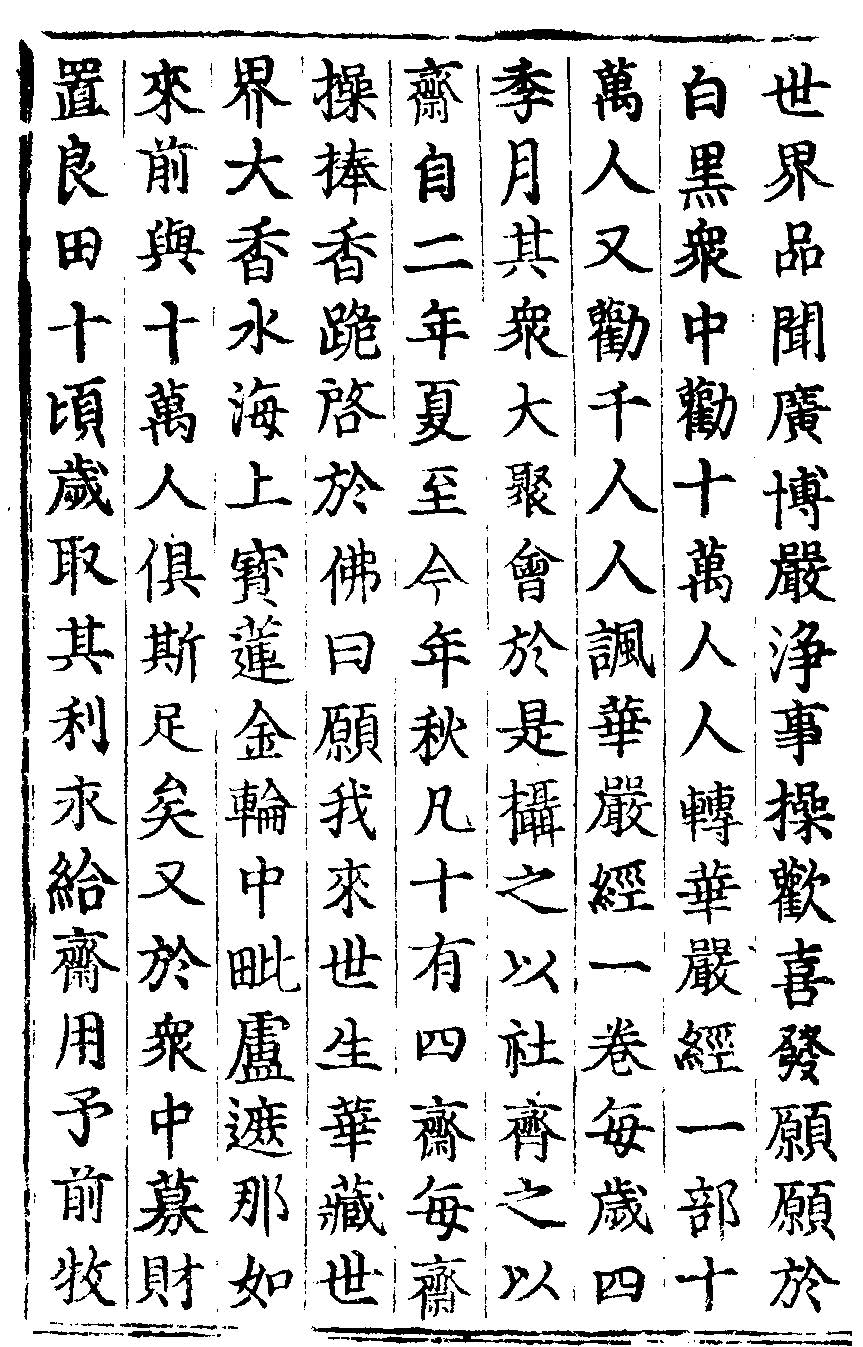 世界品聞廣博嚴淨事操歡喜發願願於
白黑衆中勸十萬人人轉華嚴經一部十
萬人又勸千人人諷華嚴經一卷每歲四
季月其衆大聚會於是攝之以社齊之以
齋自二年夏至今年秋凡十有四齋每齋
操捧香跪啓於佛曰願我來世生華藏世
界大香水海上寶蓮金輪中毗盧遮那如
來前與十萬人俱斯足矣又於衆中募財
置良田十頃歲取其利永給齋用予前牧